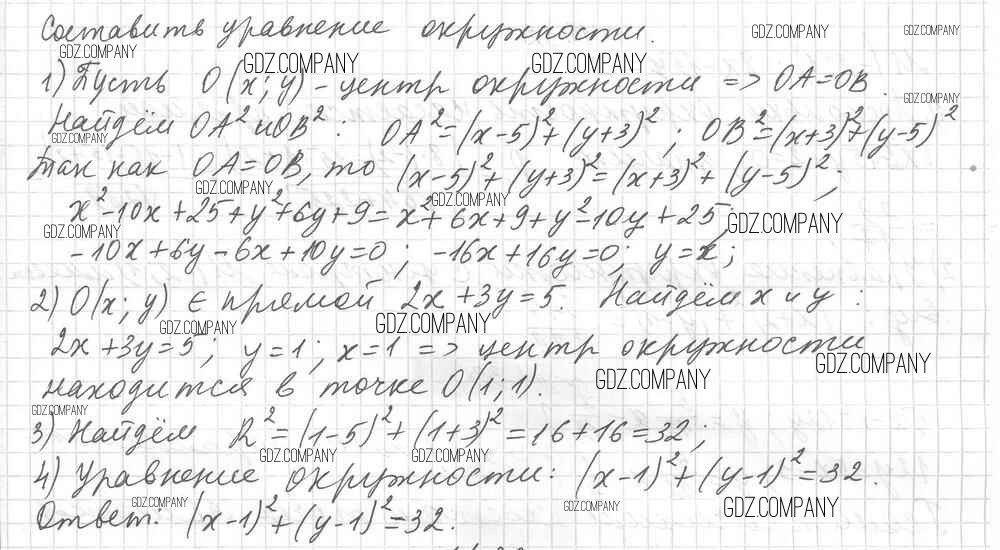 Составить уравнение окружности.
GDZ.COMPANY GDZ.COMPANY GDZ.COMPANY
GDZ.COMPANY GDZ.COMPANY
1) Пусть O(x; y) - центр окружности => OA=OB.
GDZ.COMPANY
Найдём OA² и OB²: OA²=(x-5)²+(y+3)²; OB²=(x+3)²+(y-5)²
GDZ.COMPANY
Так как OA=OB, то (x-5)²+(y+3)²=(x+3)²+(y-5)²;
GDZ.COMPANY GDZ.COMPANY
x²-10x+25+y²+6y+9=x²+6x+9+y²-10y+25
GDZ.COMPANY GDZ.COMPANY
-10x+6y-6x+10y=0; -16x+16y=0; y=x;
2) O(x; y) ∈ прямой 2x+3y=5. Найдём x и y:
GDZ.COMPANY GDZ.COMPANY
2x+3y=5; y=1; x=1 => центр окружности
GDZ.COMPANY GDZ.COMPANY
находится в точке O(1;1).
GDZ.COMPANY
3) Найдём R²=(1-5)²+(1+3)²=16+16=32;
GDZ.COMPANY GDZ.COMPANY
4) Уравнение окружности: (x-1)²+(y-1)²=32.
GDZ.COMPANY GDZ.COMPANY GDZ.COMPANY
Ответ: (x-1)²+(y-1)²=32.